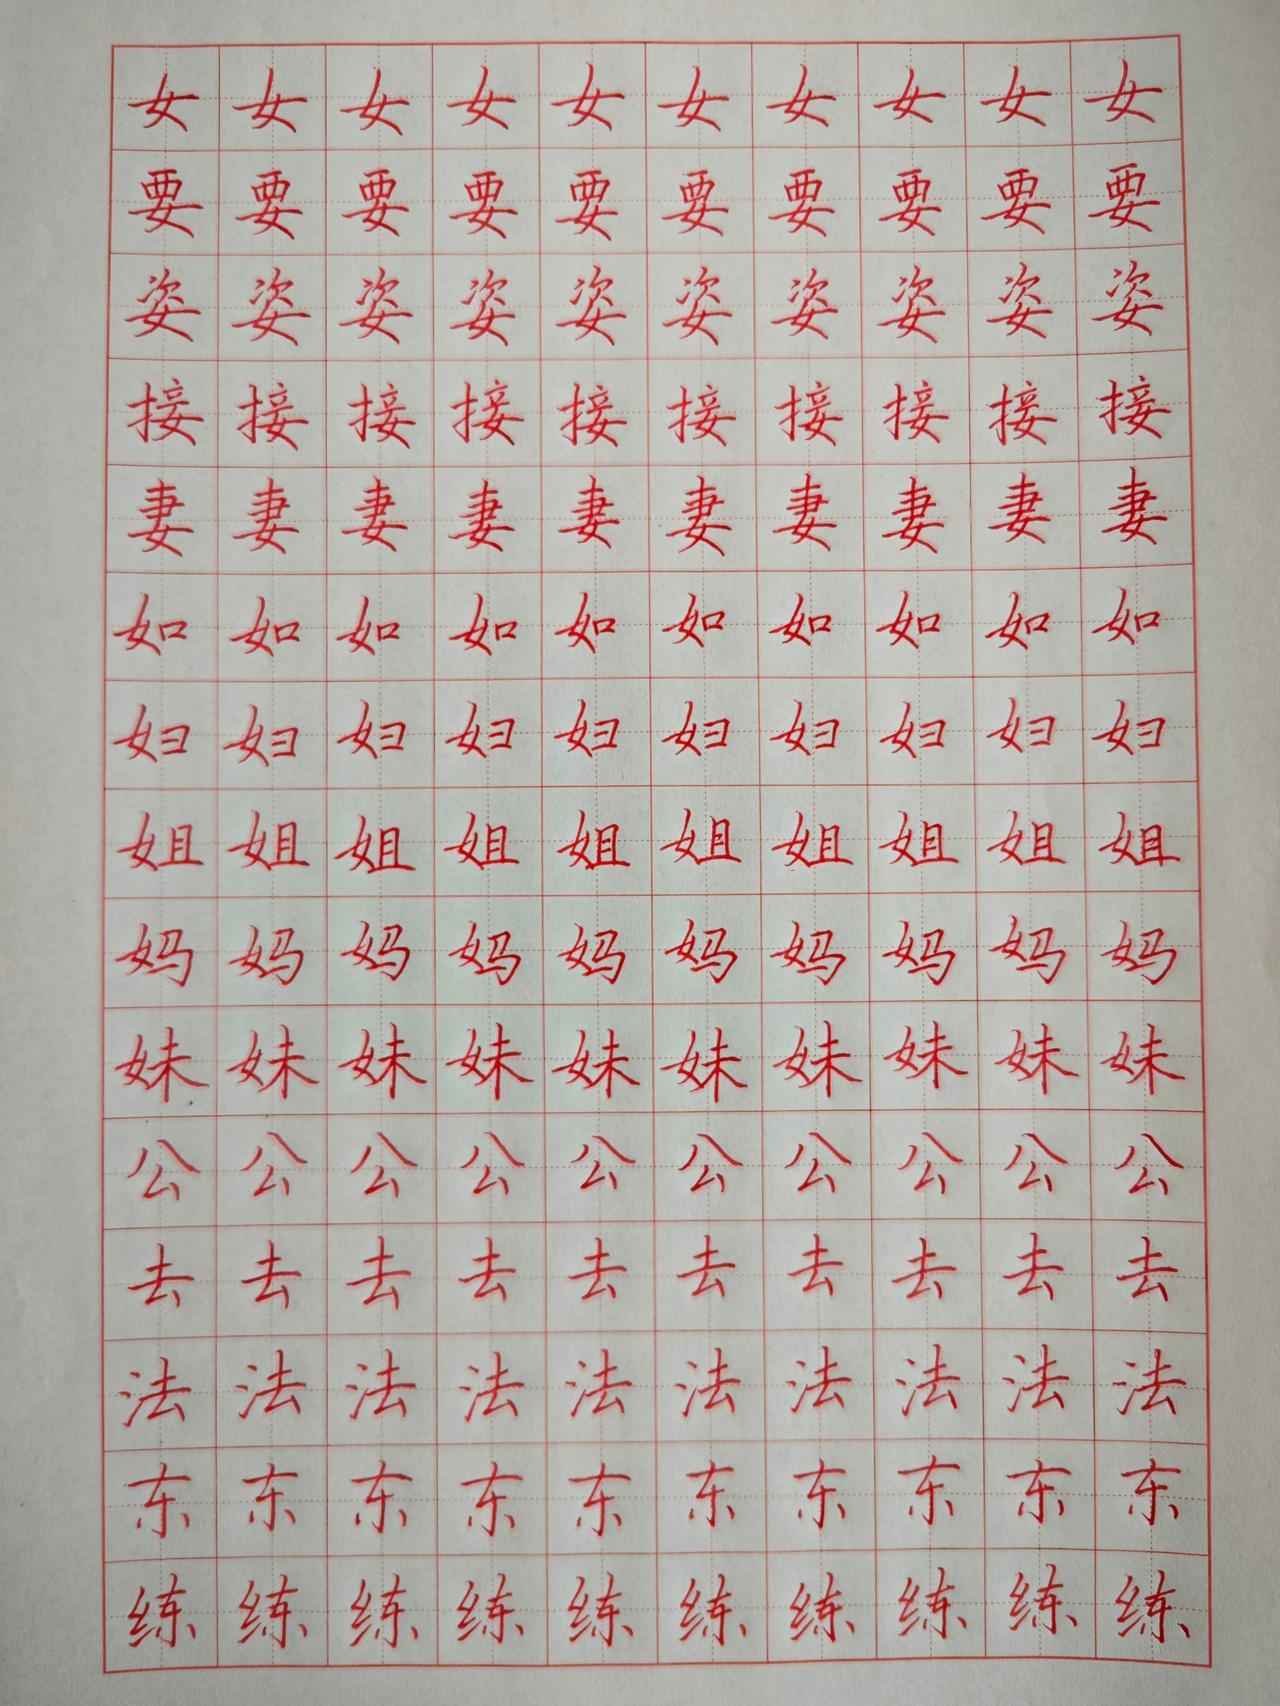 女女女女女女女女女女
要要要要要要要要要要
姿姿姿姿姿姿姿姿姿姿
接接接接接接接接接接
妻妻妻妻妻妻妻妻妻妻
如如如如如如如如如如
妇妇妇妇妇妇妇妇妇妇
姐姐姐姐姐姐姐姐姐姐
妈妈妈妈妈妈妈妈妈妈
妹妹妹妹妹妹妹妹妹妹
公公公公公公公公公公
去去去去去去去去去去
法法法法法法法法法法
东东东东东东东东东东
练练练练练练练练练练